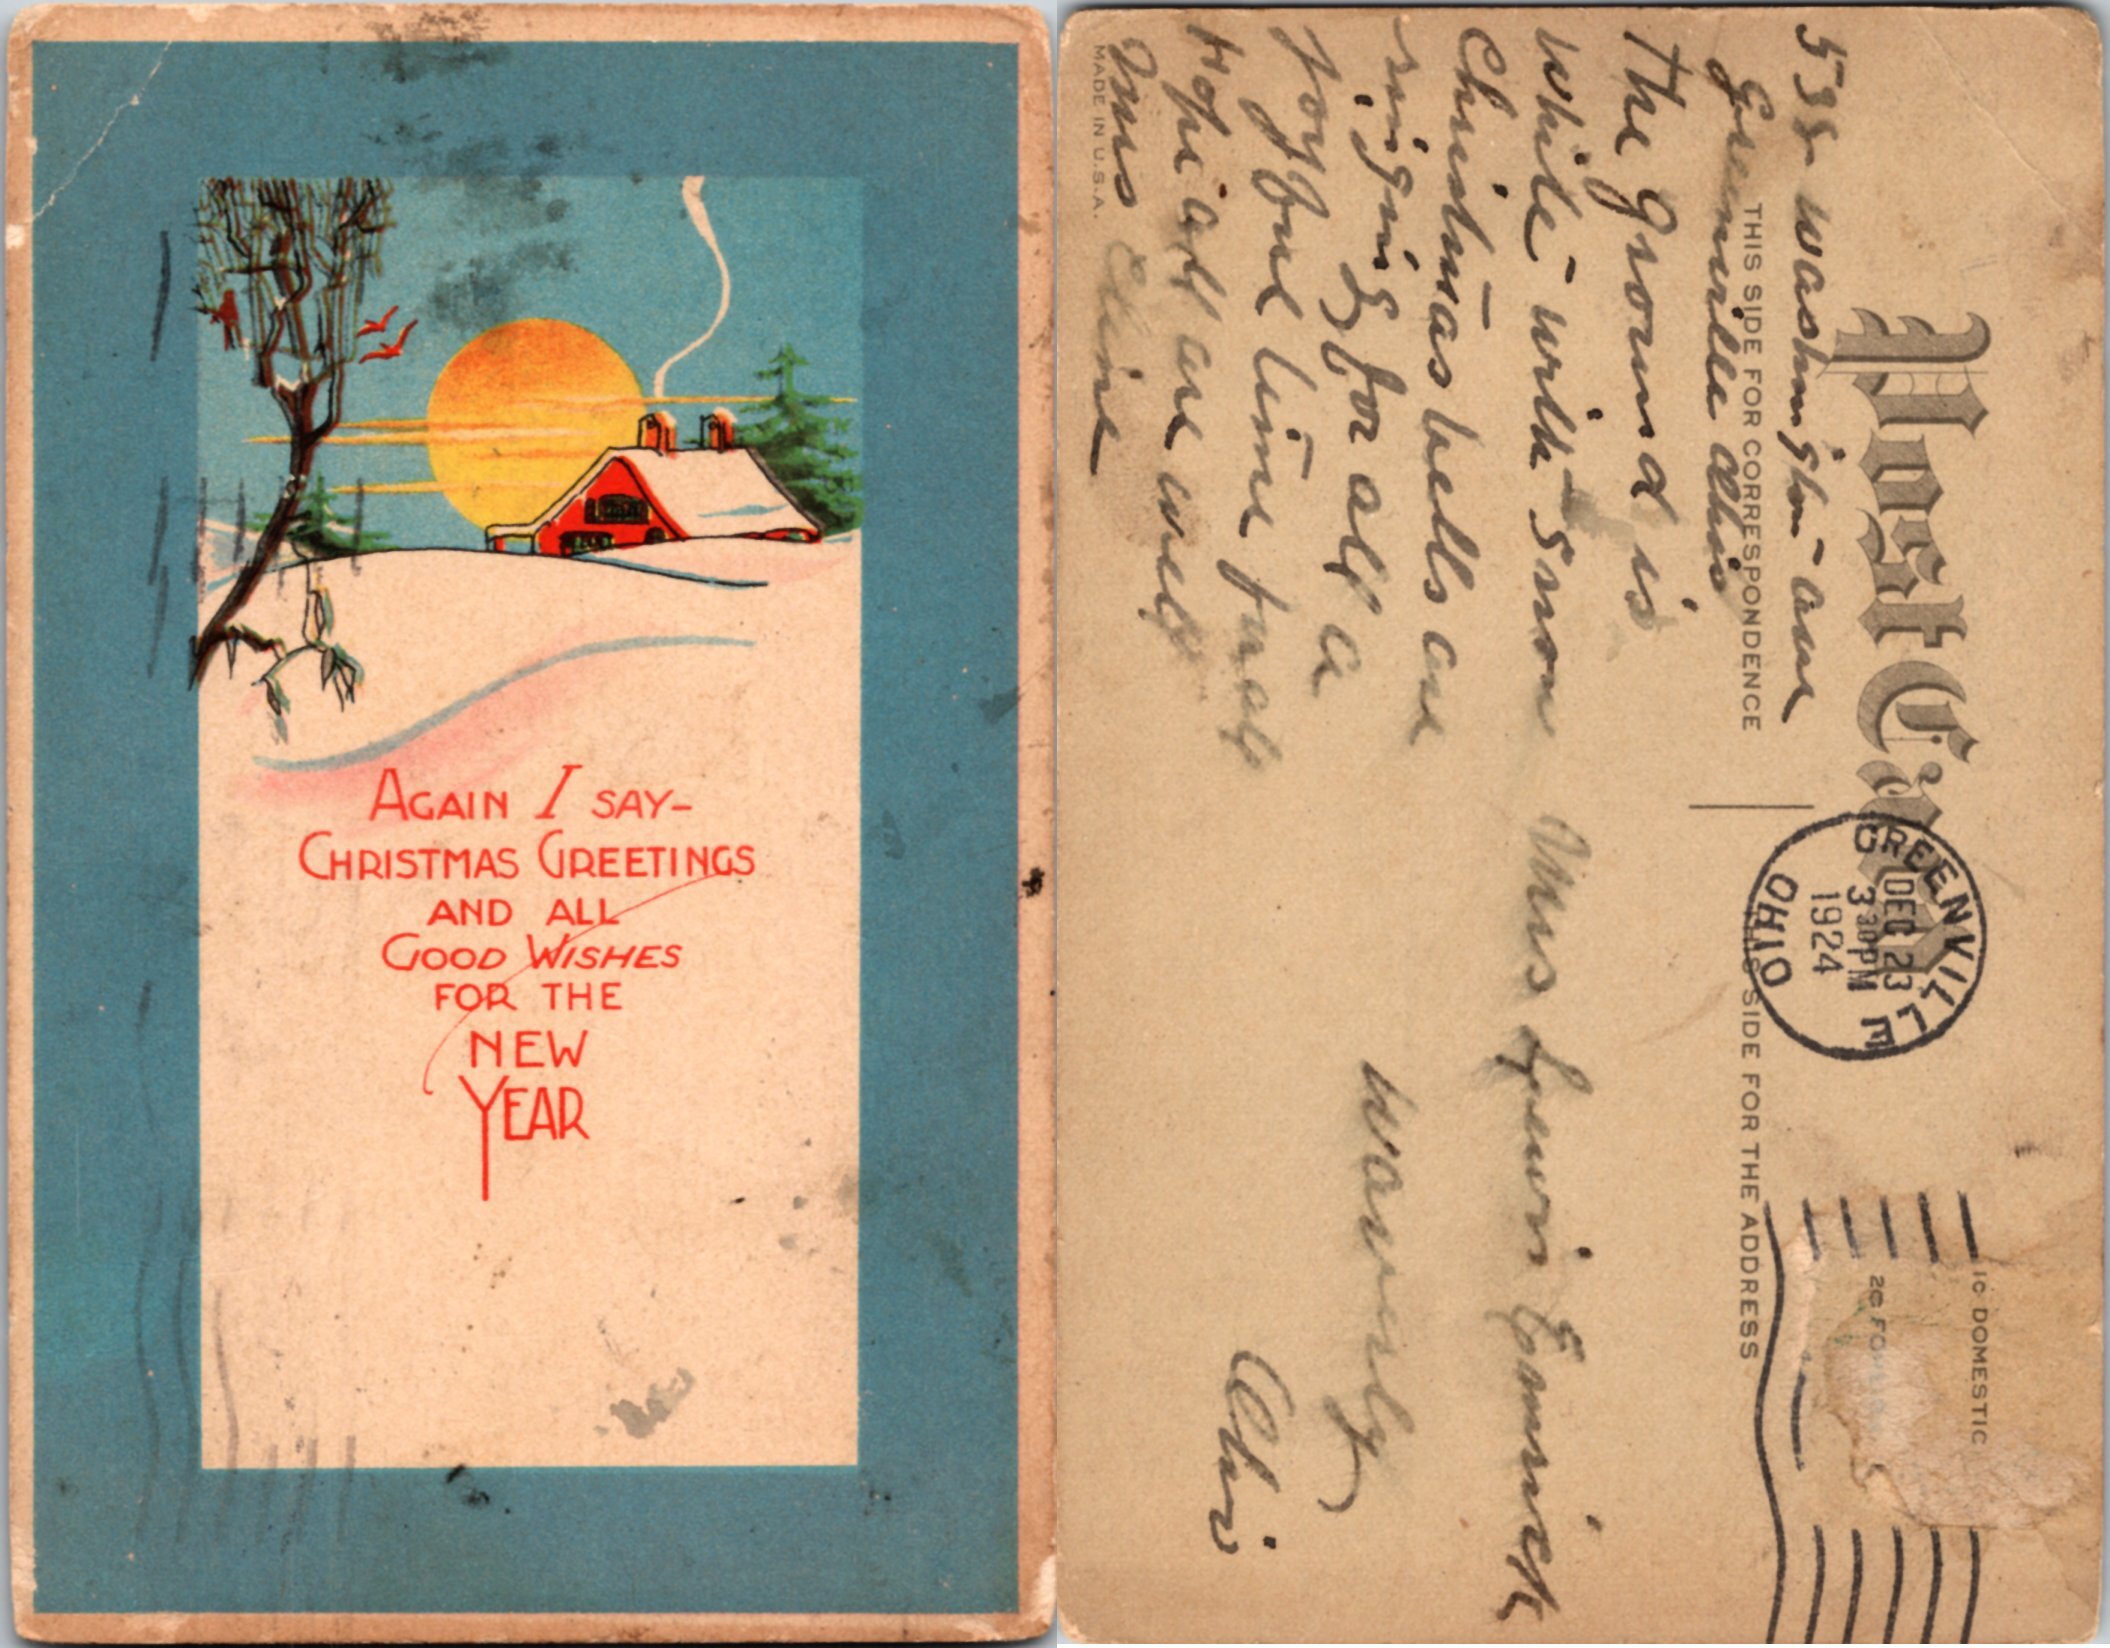 AGAIN I SAY-
CHRISTMAS GREETINGS
AND ALL
GOOD WISHES
FOR THE
NEW
YEAR
Post Card
THIS SIDE FOR CORRESPONDENCE
THIS SIDE FOR THE ADDRESS
GREENVILLE
DEC 23
3 30 PM
1924
OHIO
1C DOMESTIC
2C FO
538 Washington
Greenville Ohio
The ground is
white with snow
Christmas bells are
ringing for all a
joyful time
Hope all are well
Mrs Cline
Mrs
Waverly
Ohio
MADE IN U.S.A.